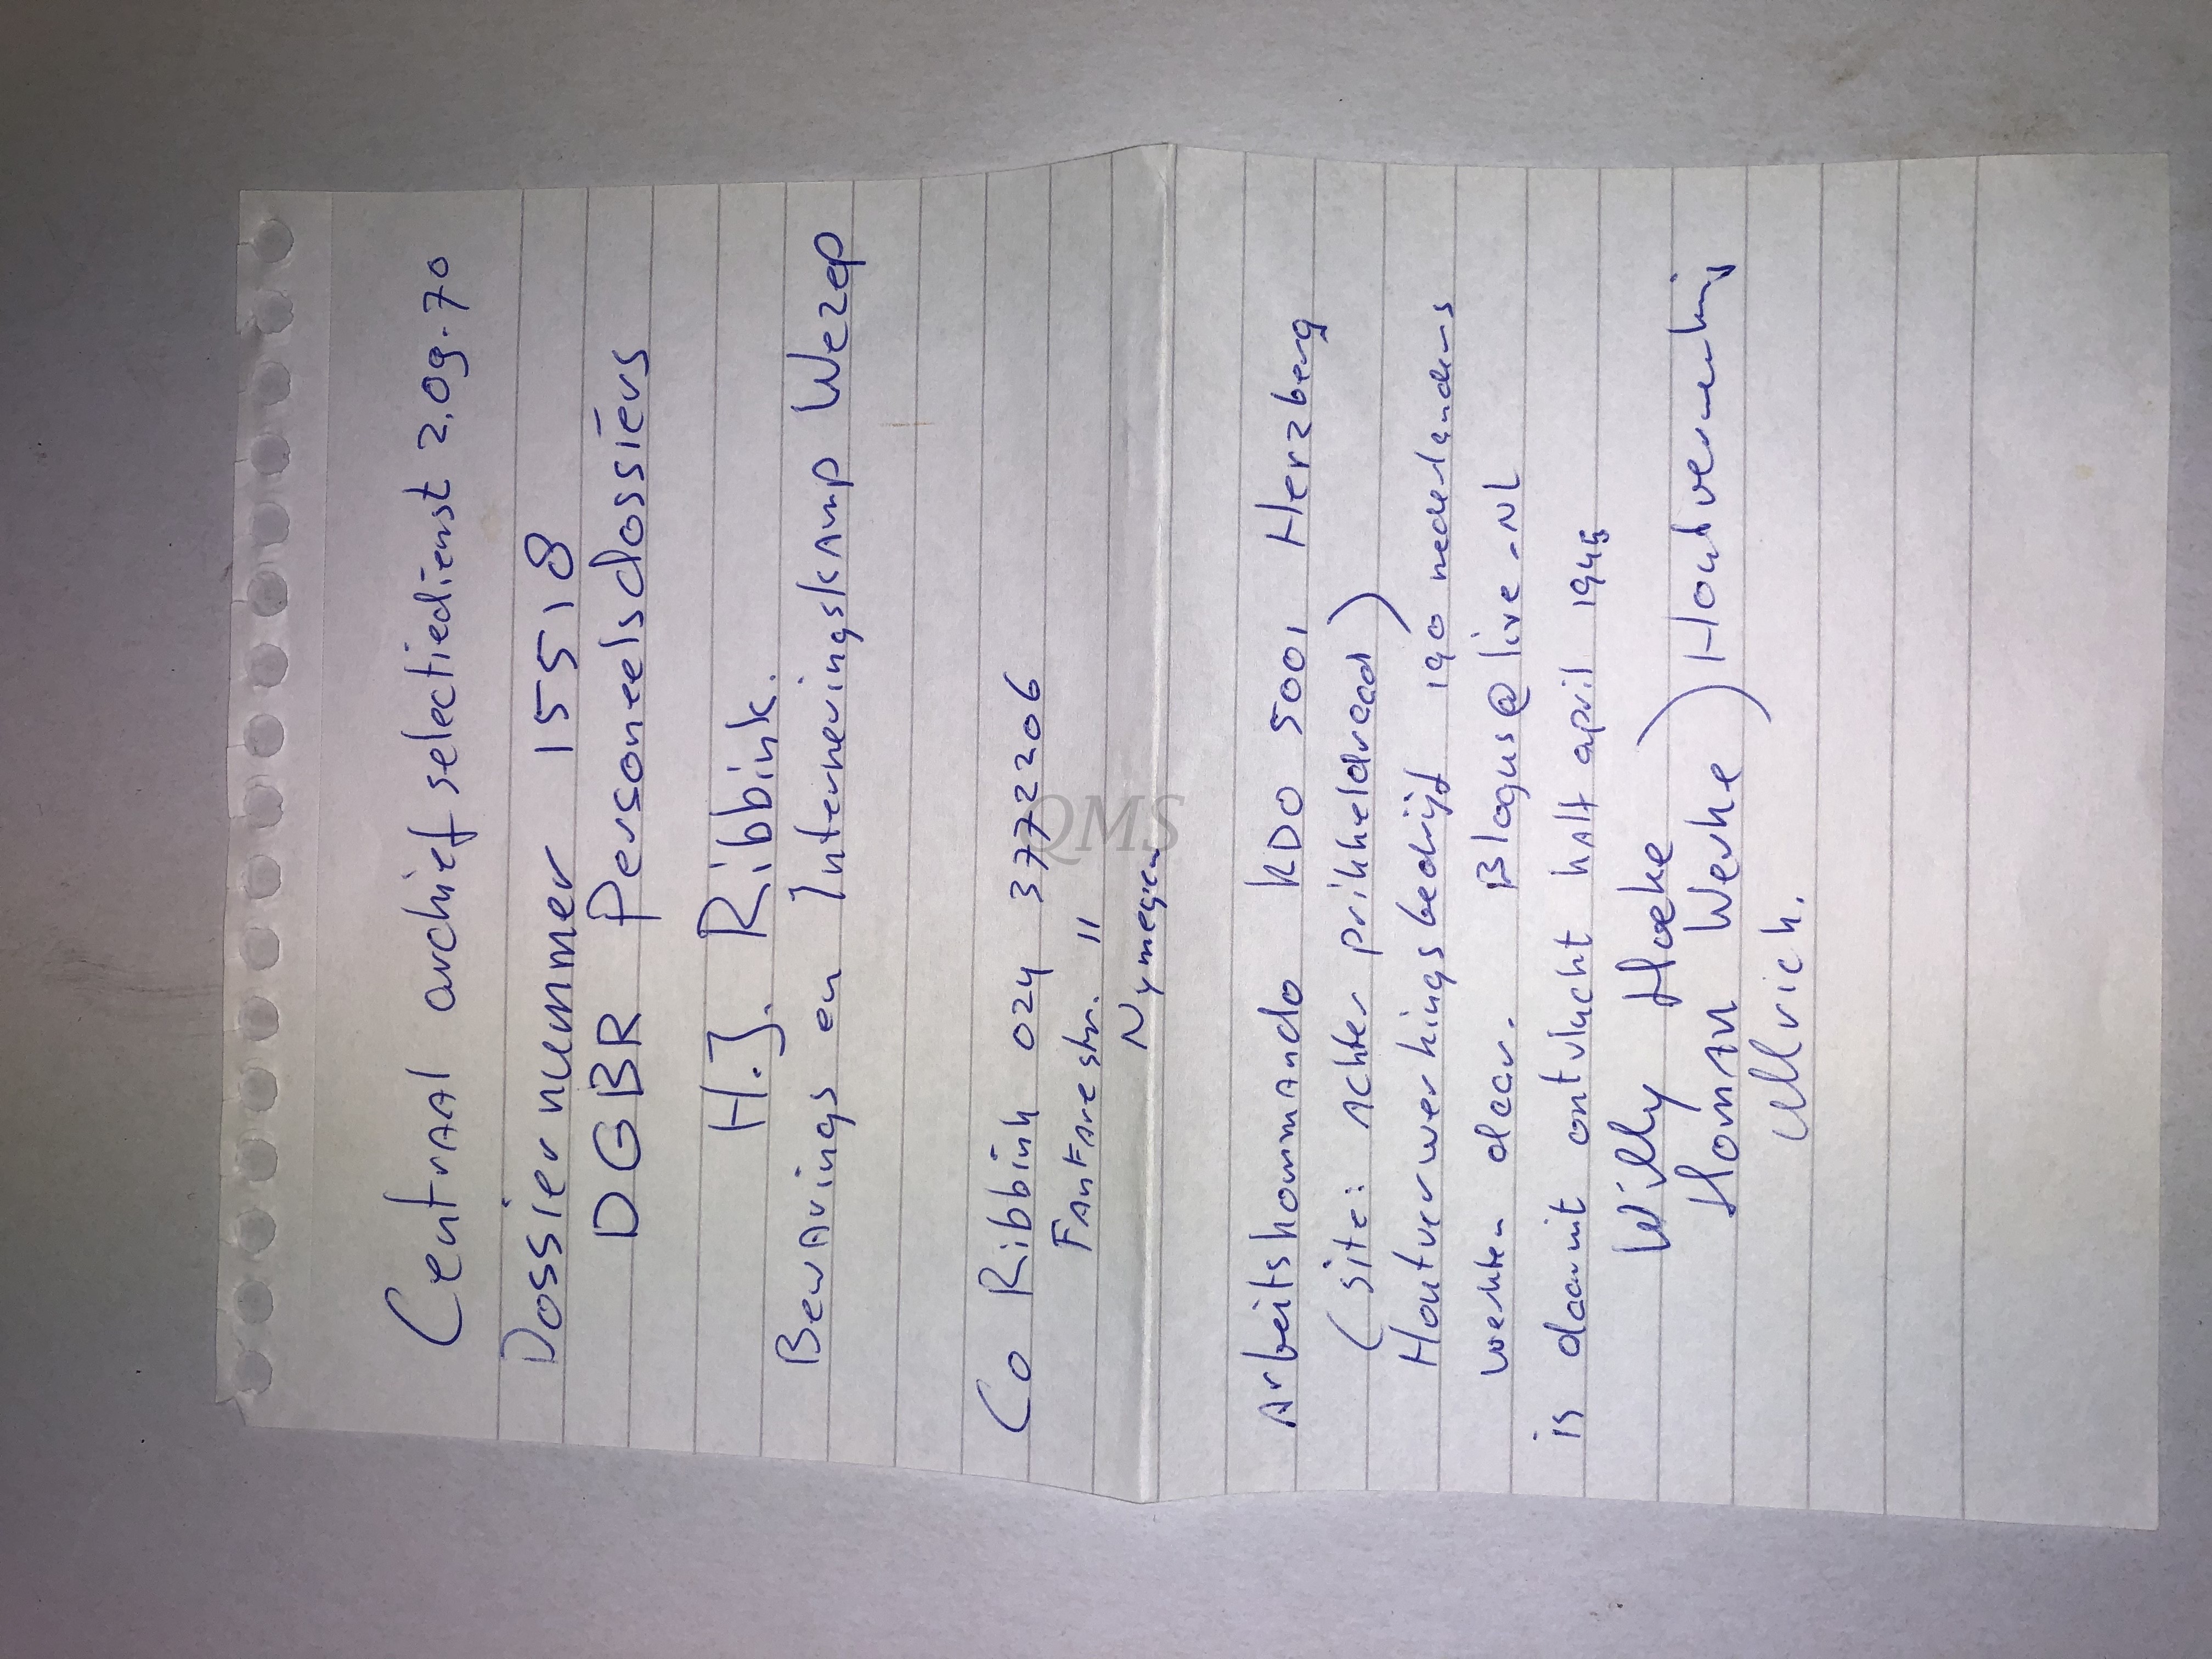 Centraal archief selectiedienst 2.09.70
Dossier nummer 15518
DGBR Personeelsdossiers
H.J. Ribbink.
Bewarings en Interneringskamp Wezep
Co Ribbink 024 3772206
Fanfarestr. 11
Nymegen
QMS
Arbeitskommando KDO 5001 Herzberg
(site: achter prikkeldraad)
Houtverwerkingsbedrijf 190 nederlanders
werkten daar. Blogus@live.NL
is daaruit ontvlucht half april 1945
Willy Hoeke
Homan Werke ) Houtverwerking
Ullrich.